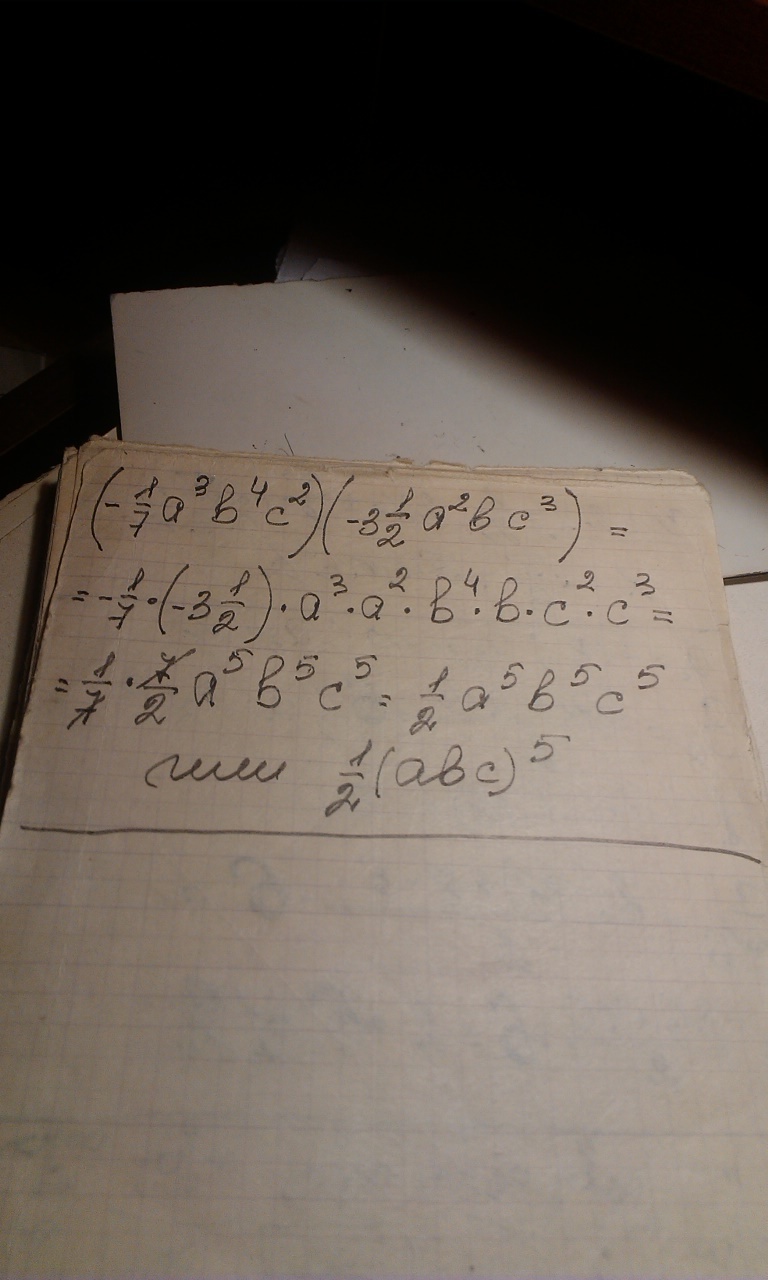 (-1/7 a³b⁴c²)(-3 1/2 a²bc³) =
= -1/7·(-3 1/2)·a³·a²·b⁴·b·c²·c³ =
= 1/7·7/2 a⁵b⁵c⁵ = 1/2 a⁵b⁵c⁵
или 1/2(abc)⁵